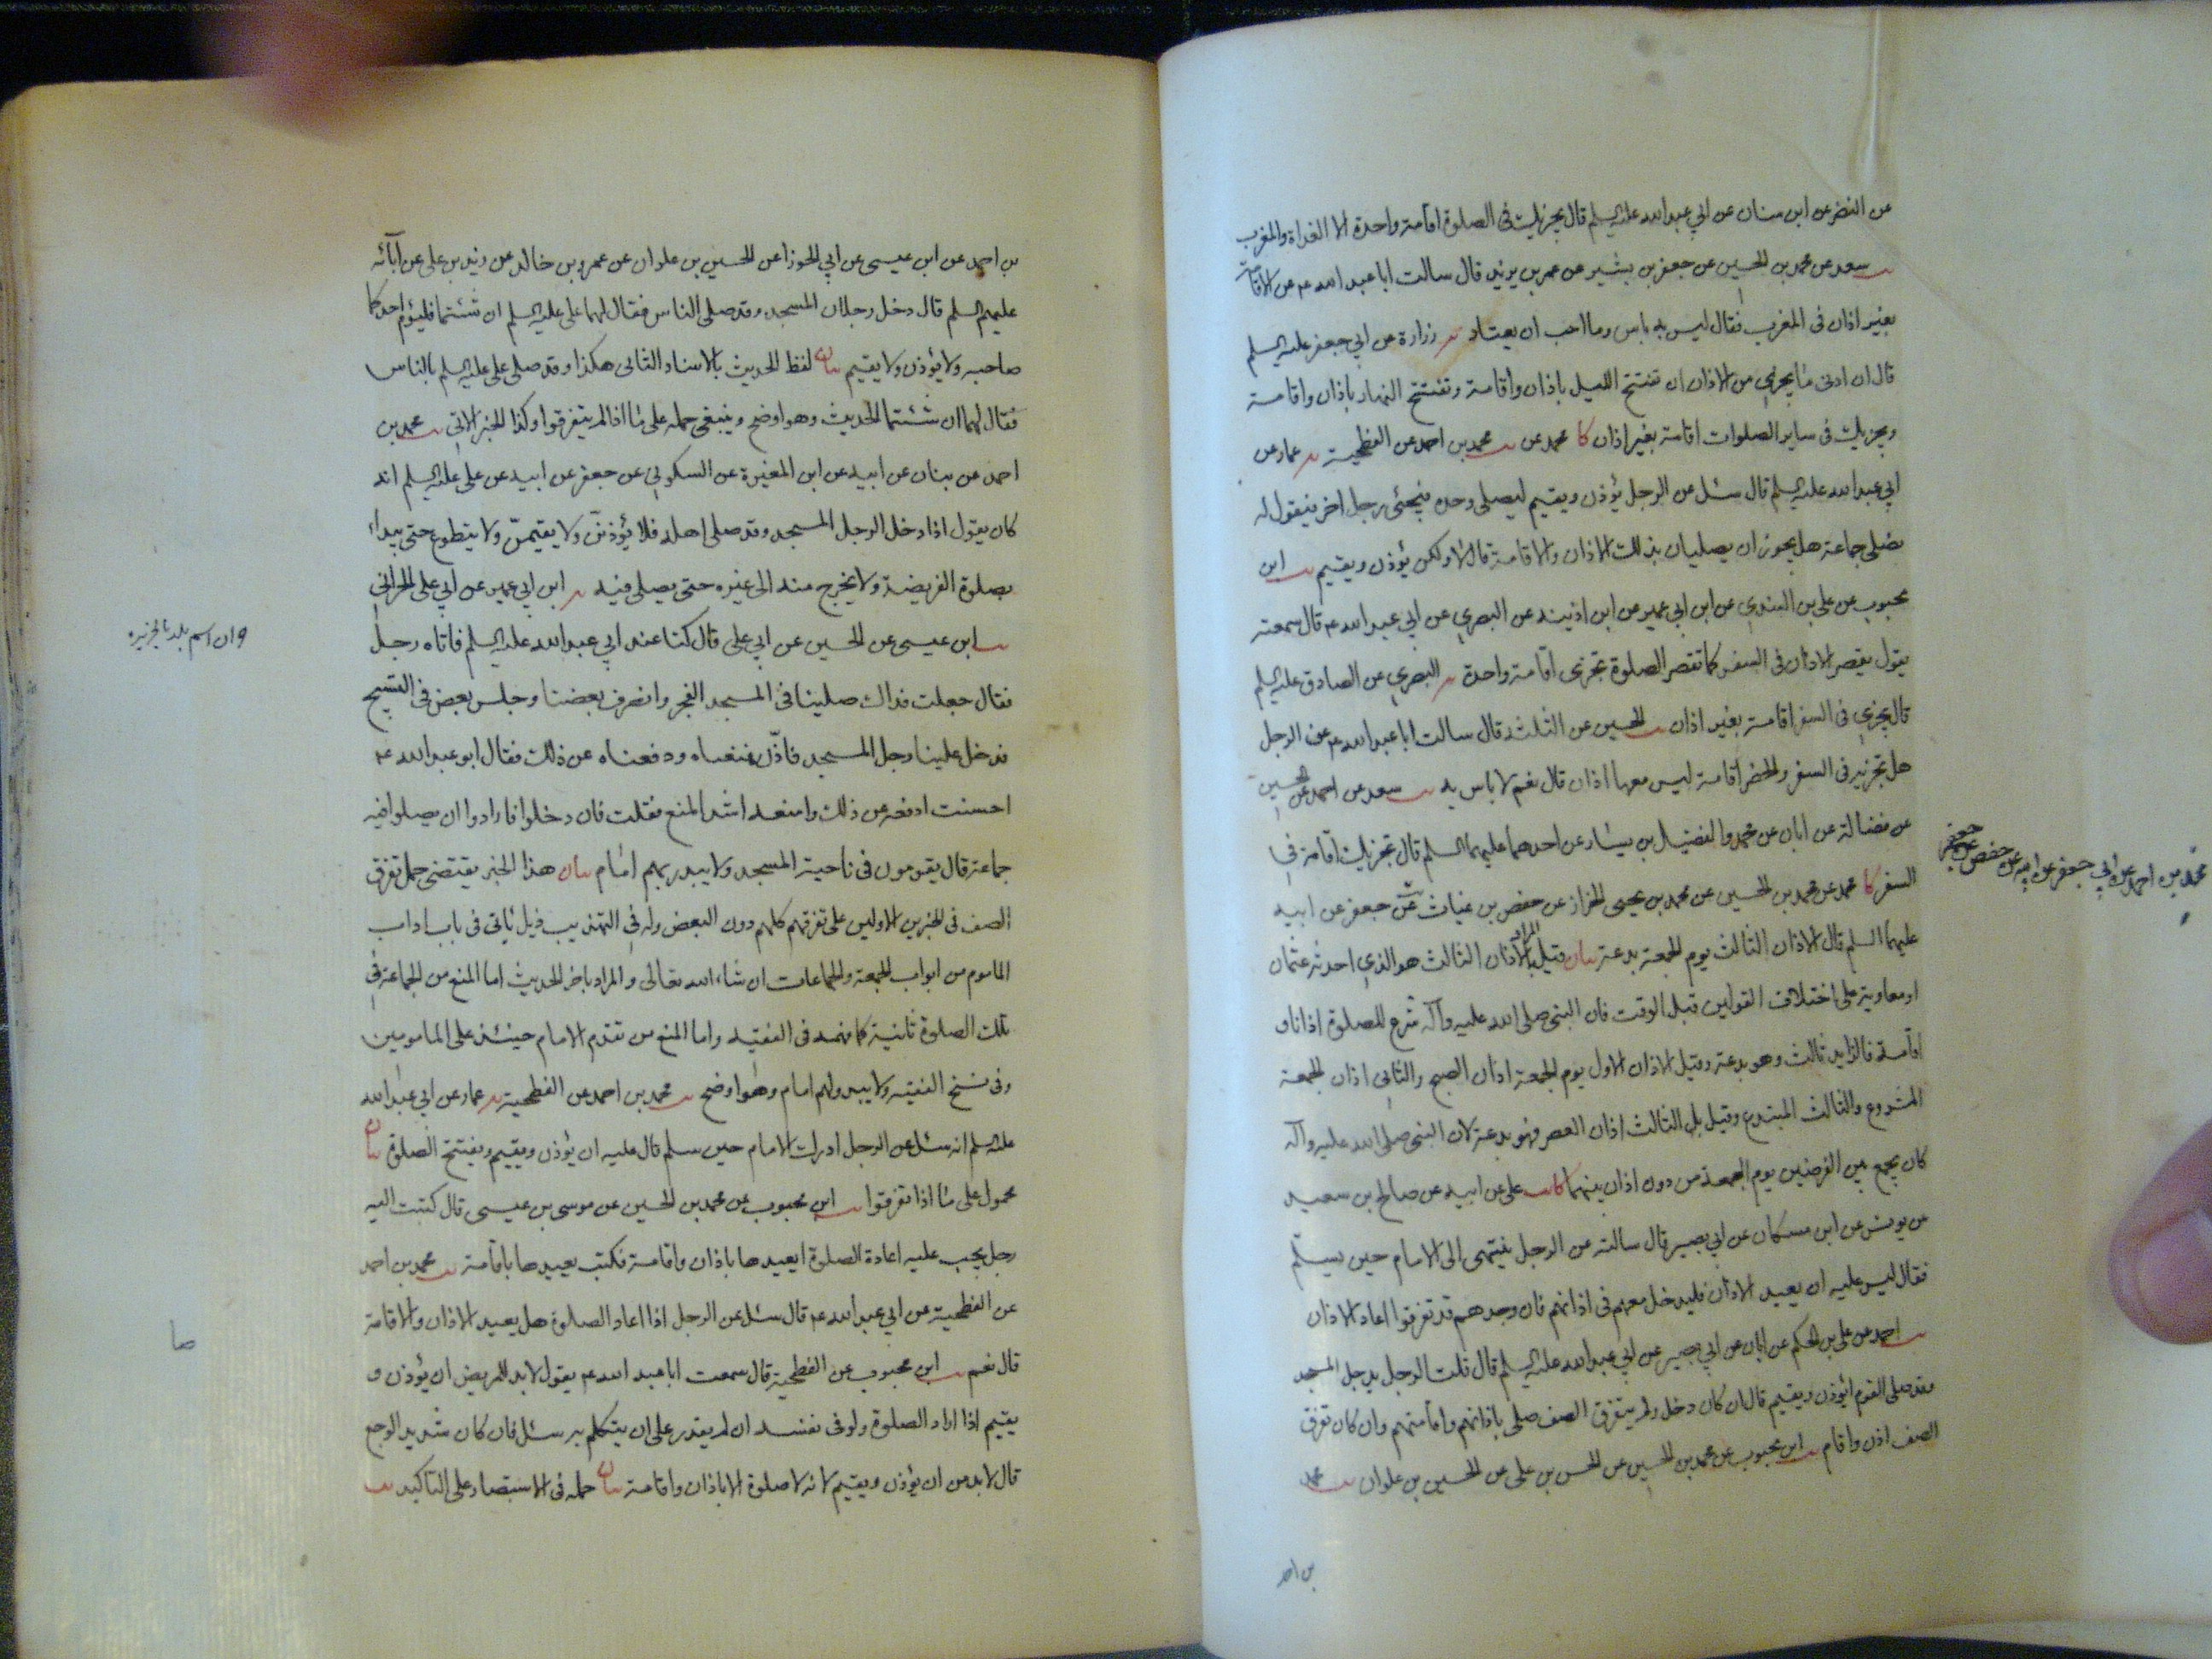 عن النضر عن ابن سنان عن ابي عبد الله عليه السلم قال يجزيك في الصلوة اقامة واحدة الا الغداة والمغرب
يب سعد عن محمد بن الحسين عن جعفر بن بشير عن عمر بن يزيد قال سالت ابا عبد الله عم عن الاقامة
بغير اذان في المغرب فقال ليس به باس وما احب ان يعتاد يه زرارة عن ابي جعفر عليه السلم
قال ان ادنى ما يجزي من الاذان ان تفتتح الليل باذان واقامة وتفتتح النهار باذان واقامة
ويجزيك في ساير الصلوات اقامة بغير اذان كا محمد عن يب محمد بن احمد عن الفطحية يه عمار عن
ابي عبد الله عليه السلم قال سئل عن الرجل يؤذن ويقيم ليصلي وحده فيجئ رجل اخر فيقول له
نصلي جماعة هل يجوز ان يصليان بذلك الاذان والاقامة قال لا ولكن يؤذن ويقيم يب ابن
محبوب عن علي بن السندي عن ابن ابي عمير عن ابن اذينة عن البصري عن ابي عبد الله عم قال سمعته
يقول يقصر الاذان في السفر كما تقصر الصلوة تجزى اقامة واحدة يه البصري عن الصادق عليه السلم
قال يجزي في السفر اقامة بغير اذان يب الحسين عن الثلثة قال سالت ابا عبد الله عم عن الرجل
هل تجزيه في السفر والحضر اقامة ليس معها اذان قال نعم لا باس به يب سعد عن احمد عن الحسين
عن فضالة عن ابان عن محمد والفضيل بن يسار عن احدهما عليهما السلم قال تجزيك اقامة في
السفر كا محمد عن محمد بن الحسين عن محمد بن يحيى الخزاز عن حفص بن غياث عن جعفر عن ابيه
محمد بن احمد عن ابي جعفر عن ابيه عن حفص عن جعفر
عليهما السلم قال الاذان الثالث يوم الجمعة بدعة بيان قيل المراد بالاذان الثالث هو الذي احدثه عثمان
او معاوية على اختلاف القولين قبل الوقت فان النبي صلى الله عليه وآله شرع للصلوة اذانا و
اقامة فالزايد ثالث وهو بدعة وقيل الاذان الاول يوم الجمعة اذان الصبح والثاني اذان الجمعة
المشروع والثالث المبتدع وقيل بل الثالث اذان العصر فهو بدعة لان النبي صلى الله عليه وآله
كان يجمع بين الفرضين يوم الجمعة من دون اذان بينهما كا يب علي عن ابيه عن صالح بن سعيد
عن يونس عن ابن مسكان عن ابي بصير قال سالته عن الرجل ينتهي الى الامام حين يسلم
فقال ليس عليه ان يعيد الاذان فليدخل معهم في اذانهم فان وجدهم قد تفرقوا اعاد الاذان
يب احمد عن علي بن الحكم عن ابان عن ابي بصير عن ابي عبد الله عليه السلم قال قلت الرجل يدخل المسجد
وقد صلى القوم ايؤذن ويقيم قال ان كان دخل ولم يتفرق الصف صلى باذانهم واقامتهم وان كان تفرق
الصف اذن واقام يب ابن محبوب عن محمد بن الحسين عن الحسن بن علي عن الحسين بن علوان يب محمد
بن احمد
بن احمد عن ابن عيسى عن ابي الجوزا عن الحسين بن علوان عن عمرو بن خالد عن زيد بن علي عن آبائه
عليهم السلم قال دخل رجلان المسجد وقد صلى الناس فقال لهما علي عليه السلم ان شئتما فليؤم احدكما
صاحبه ولا يؤذن ولا يقيم بيان لفظ الحديث بالاسناد الثاني هكذا وقد صلى علي عليه السلم بالناس
فقال لهما ان شئتما الحديث وهو اوضح وينبغي حمله على ما اذا لم يتفرقوا وكذا الخبر الاتي يب محمد بن
احمد عن بنان عن ابيه عن ابن المغيرة عن السكوني عن جعفر عن ابيه عن علي عليه السلم انه
كان يقول اذا دخل الرجل المسجد وقد صلى اهله فلا يؤذنن ولا يقيمن ولا يتطوع حتى يبدأ
بصلوة الفريضة ولا يخرج منه الى غيره حتى يصلي فيه يه ابن ابي عمير عن ابي علي الحراني
يب ابن عيسى عن الحسين عن ابي علي قال كنا عند ابي عبد الله عليه السلم فاتاه رجل
حران اسم بلد بالجزيرة
فقال جعلت فداك صلينا في المسجد الفجر وانصرف بعضنا وجلس بعض في التسبيح
فدخل علينا رجل المسجد فاذن فمنعناه ودفعناه عن ذلك فقال ابو عبد الله عم
احسنت ادفعه عن ذلك وامنعه اشد المنع فقلت فان دخلوا فارادوا ان يصلوا فيه
جماعة قال يقومون في ناحية المسجد ولا يبدر بهم امام بيان هذا الخبر يقتضي حمل تفرق
الصف في الخبرين الاولين على تفرقهم كلهم دون البعض وله في التهذيب ذيل ياتي في باب اداب
الماموم من ابواب الجمعة والجماعات ان شاء الله تعالى والمراد باخر الحديث اما المنع من الجماعة في
تلك الصلوة ثانية كما فهمه في الفقيه واما المنع من تقدم الامام حينئذ على المامومين
وفي نسخ الفقيه ولا يبدو لهم امام وهو اوضح يب محمد بن احمد عن الفطحية يه عمار عن ابي عبد الله
عليه السلم انه سئل عن الرجل ادرك الامام حين سلم قال عليه ان يؤذن ويقيم ويفتتح الصلوة بيان
محمول على ما اذا تفرقوا يب ابن محبوب عن محمد بن الحسين عن موسى بن عيسى قال كتبت اليه
رجل يجب عليه اعادة الصلوة ايعيدها باذان واقامة فكتب يعيدها باقامة يب محمد بن احمد
عن الفطحية عن ابي عبد الله عم قال سئل عن الرجل اذا اعاد الصلوة هل يعيد الاذان والاقامة
قال نعم يب ابن محبوب عن الفطحية قال سمعت ابا عبد الله عم يقول لا بد للمريض ان يؤذن و
يقيم اذا اراد الصلوة ولو في نفسه ان لم يقدر على ان يتكلم به سئل فان كان شديد الوجع
قال لا بد من ان يؤذن ويقيم لانه لا صلوة الا باذان واقامة بيان حمله في الاستبصار على التاكيد يب